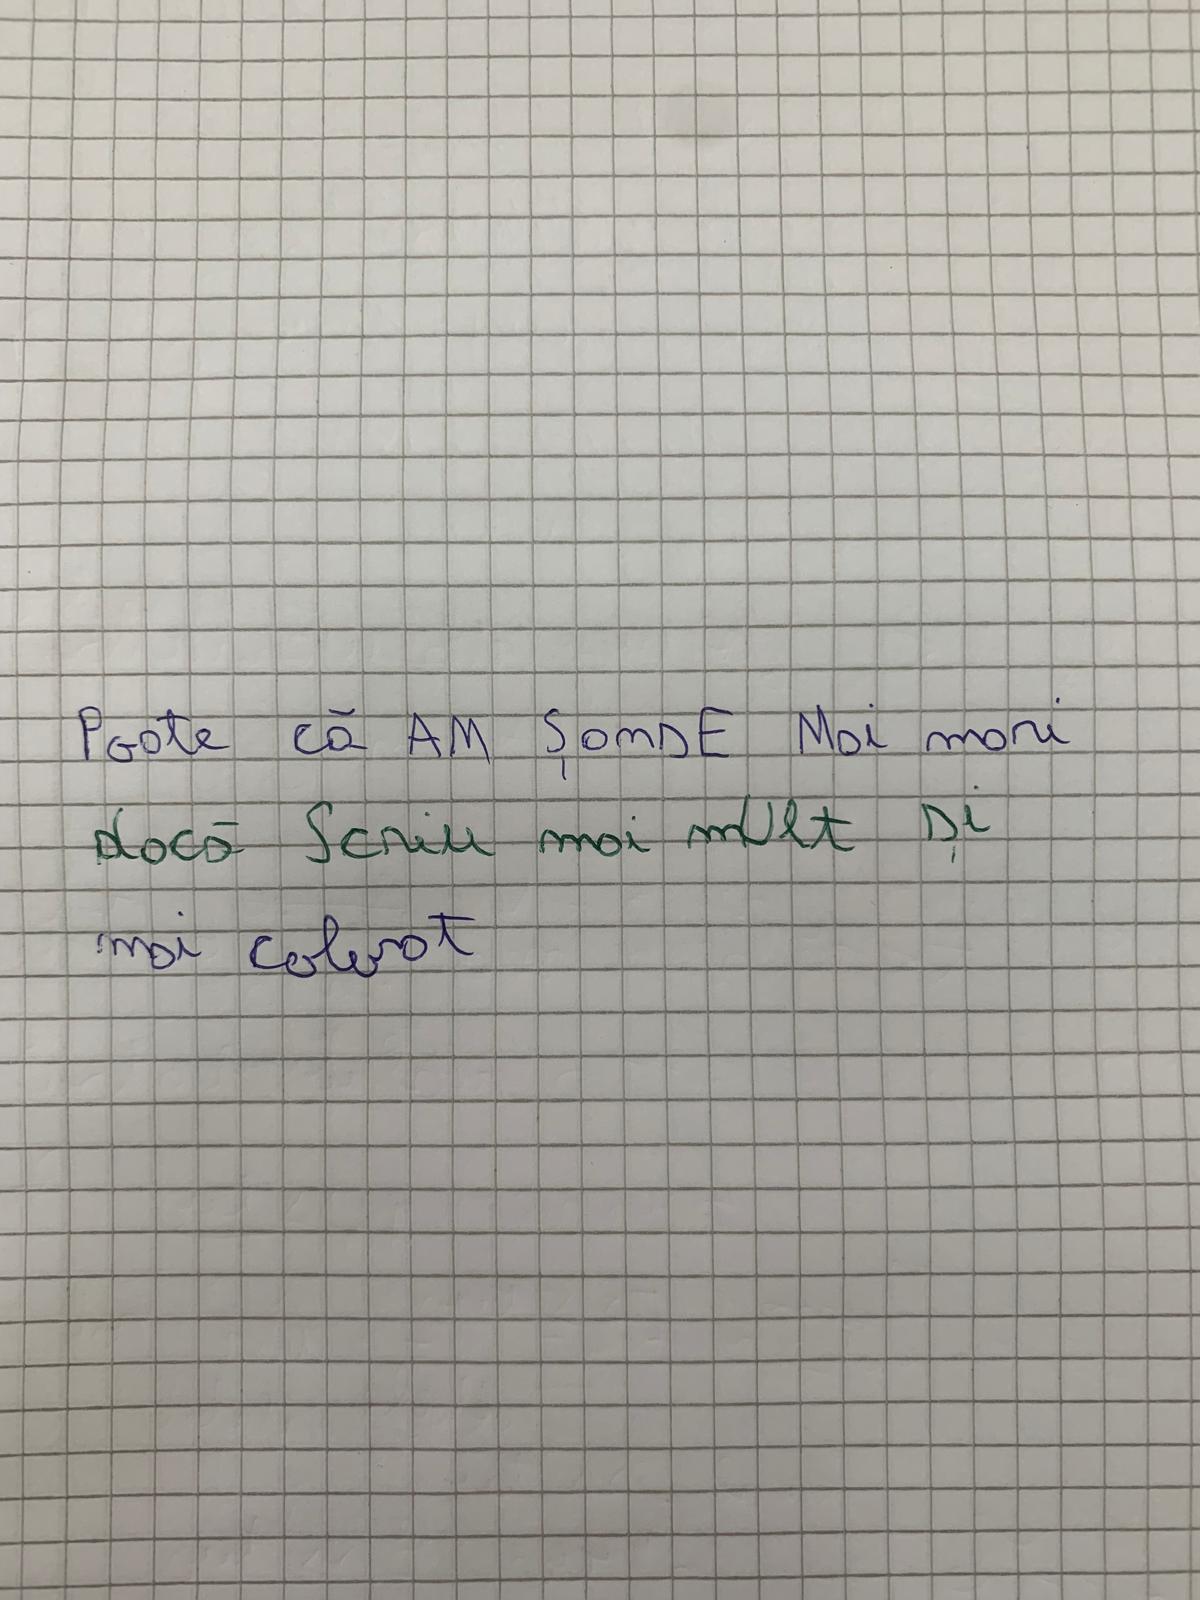 Poate că AM ȘansE Mai mari
dacă Scriu mai mUlt și
mai colorat